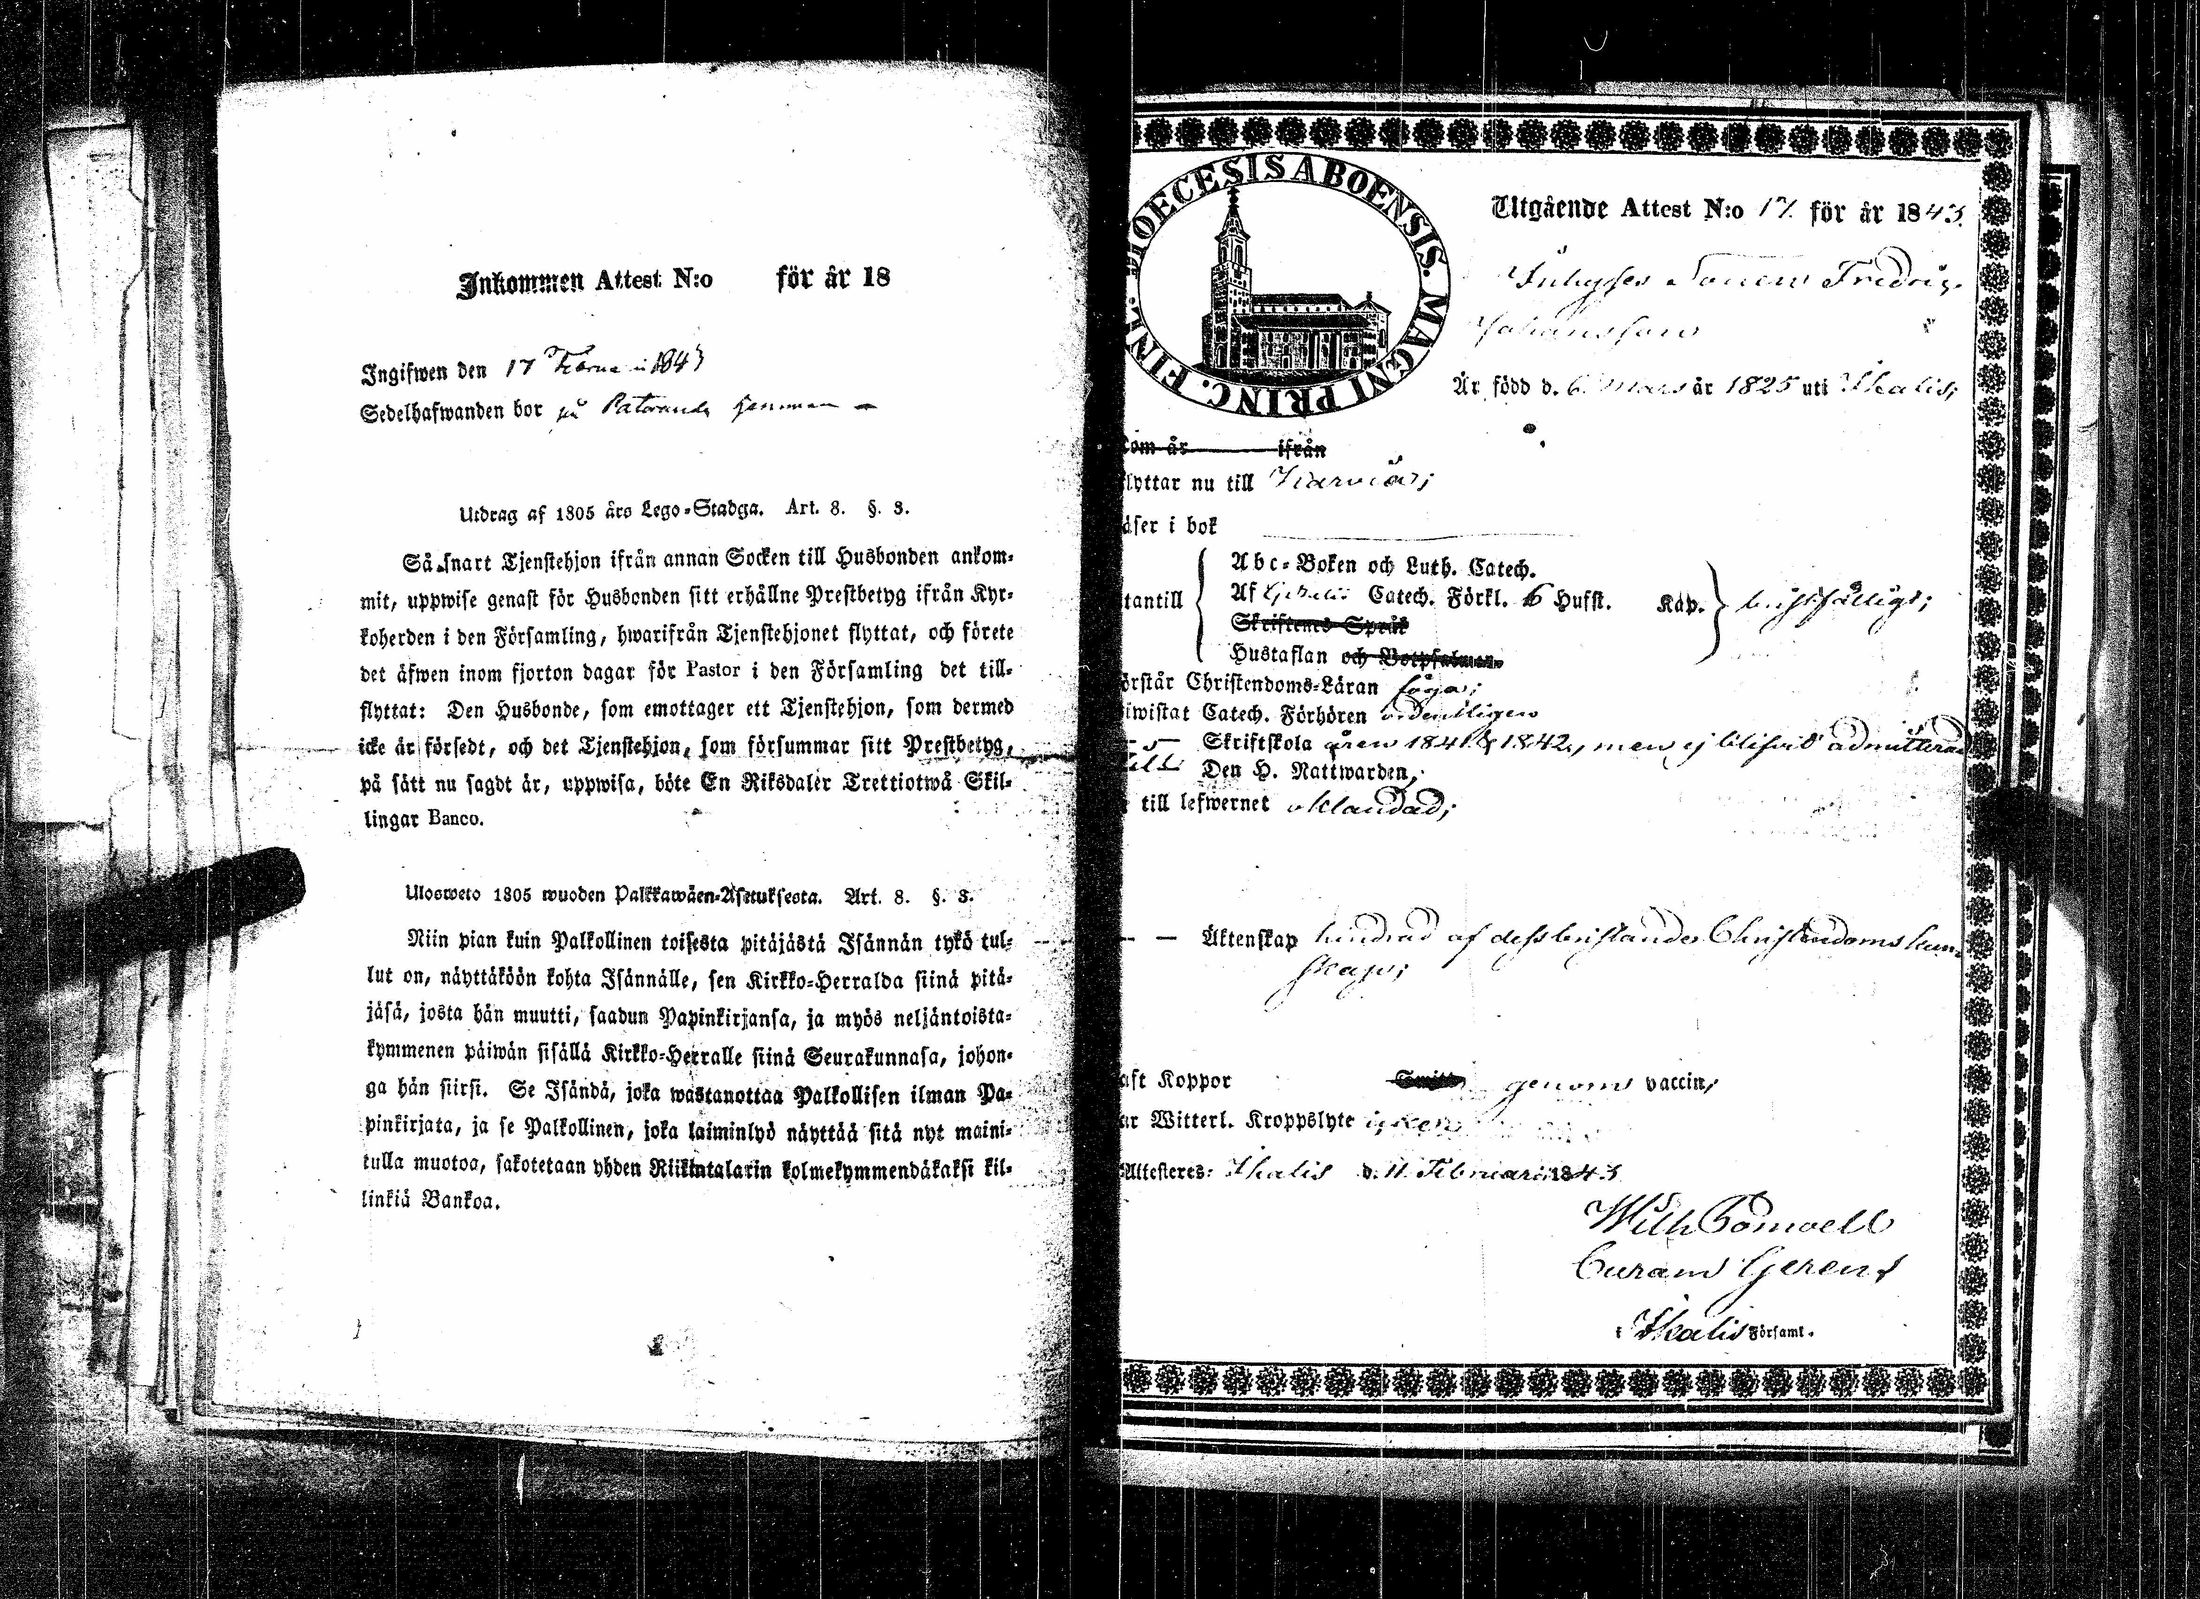 Inkommen Attest N:o för år 18
Ingifwen den 17 Februarii 1843
Sedelhafwanden bor på hemman —
Utdrag af 1805 års Lego-Stadga. Art. 8. §. 3.
Så snart Tjenstehjon ifrån annan Socken till Husbonden ankom-
mit, uppwise genast för Husbonden sitt erhållne Prestbetyg ifrån Kyr-
koherden i den Församling, hwarifrån Tjenstehjonet flyttat, och förete
det äfwen inom fjorton dagar för Pastor i den Församling det till-
flyttat: Den Husbonde, som emottager ett Tjenstehjon, som dermed
icke är försedt, och det Tjenstehjon, som försummar sitt Prestbetyg,
på sätt nu sagdt är, uppwisa, böte En Riksdaler Trettiotwå Skil-
lingar Banco.
Ulosweto 1805 wuoden Palkkawäen-Asetuksesta. Art. 8. §. 3.
Niin pian kuin Palkollinen toisesta pitäjästä Isännän tykö tul-
lut on, näyttäköön kohta Isännälle, sen Kirkko-Herralda siinä pitä-
jäsä, josta hän muutti, saadun Papinkirjansa, ja myös neljäntoista-
kymmenen päiwän sisällä Kirkko-Herralle siinä Seurakunnasa, johon-
ga hän siirsi. Se Isändä, joka wastanottaa Palkollisen ilman Pa-
pinkirjata, ja se Palkollinen, joka laiminlyö näyttää sitä nyt maini-
tulla muotoa, sakotetaan yhden Riikintalarin kolmekymmendäkaksi kil-
linkiä Bankoa.
DIOECESIS ABOENSIS. MAGNI PRINC. FINL.
Utgående Attest N:o 17. för år 1843.
Inhyses Sonen Fredric
Johansson
Är född d. 6 Mars år 1825 uti Ikalis;
kom år ifrån
lyttar nu till Karvia;
äser i bok
tantill
Abc-Boken och Luth. Catech.
Af Catech. Förkl. 6 Hufst. Kap. bristfälligt;
Skriftenes Språk
Hustaflan och Botpsalmen
örstår Christendoms-Läran föga;
iwistat Catech. Förhören ordentligen
Skriftskola åren 1841 & 1842, men ej blifvit admitterad
till Den H. Nattwarden;
till lefwernet oklandrad;
— — Äktenskap hindrad af dess bristande Christendoms kun-
skap;
aft Koppor genom vaccin;
ar Witterl. Kroppslyte icke
Attesteres: Ikalis d. 11 Februari 1843
Wilh
Curam Gerens
i Ikalis Församl.